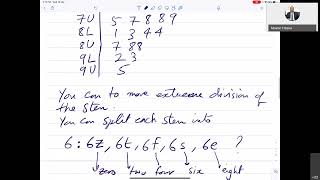 7U | 5 7 8 8 9
8L | 1 3 4 4
8U | 7 88
9L | 2 3
9U | 5
You can to more extreme division of
the stem.
You can split each stem into
6 : 6z, 6t, 6f, 6s, 6e ?
zero two four six eight